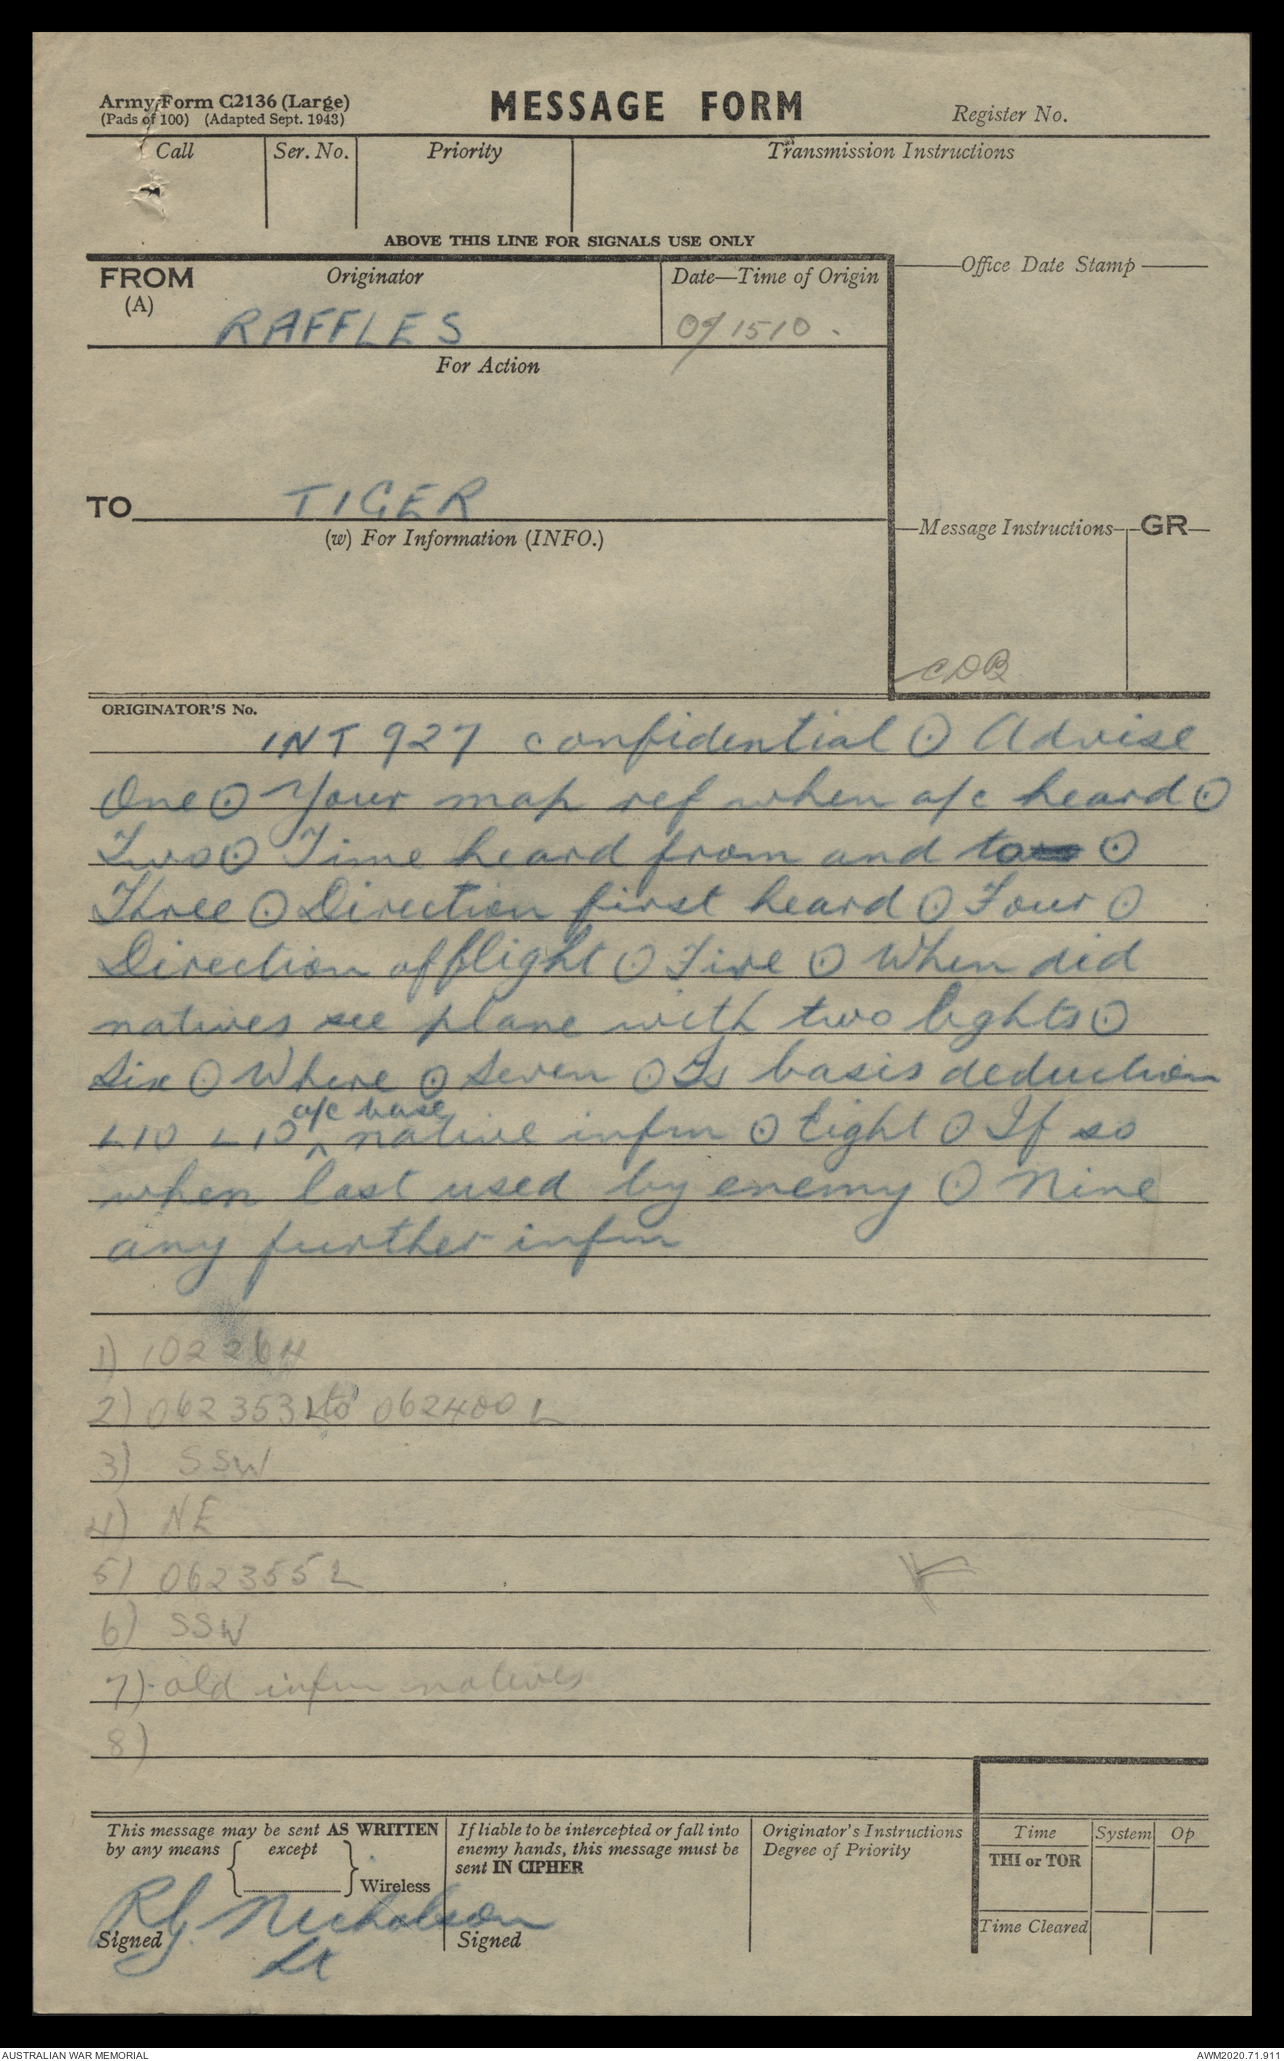 Army Form C2136 (Large)
(Pads of 100) (Adapted Sept. 1943)
MESSAGE FORM
Register No.
Call
Ser. No.
Priority
Transmission Instructions
ABOVE THIS LINE FOR SIGNALS USE ONLY
FROM
(A)
Originator
RAFFLES
Date—Time of Origin
07/1510.
Office Date Stamp
For Action
TO
TIGER
(w) For Information (INFO.)
Message Instructions
GR
CDB
ORIGINATOR'S No.
INT 927 confidential ⊙ Advise
One ⊙ Your map ref when a/c heard ⊙
Two ⊙ Time heard from and to ⊙
Three ⊙ Direction first heard ⊙ Four ⊙
Direction of flight ⊙ Five ⊙ When did
natives see plane with two lights ⊙
Six ⊙ Where ⊙ Seven ⊙ Is basis deduction
a/c base
L10 L10 ^ native infm ⊙ Eight ⊙ If so
when last used by enemy ⊙ Nine
any further infm
1) 102264
2) 062353L to 062400 L
3) SSW
4) NE
5) 062355 L
6) SSW
7) - old infm natives
8)
This message may be sent AS WRITTEN
by any means { except } Wireless
If liable to be intercepted or fall into
enemy hands, this message must be
sent IN CIPHER
Originator's Instructions
Degree of Priority
Time
System
Op
THI or TOR
Time Cleared
Signed
RG. Nicholson
Lt
Signed
AUSTRALIAN WAR MEMORIAL
AWM2020.71.911